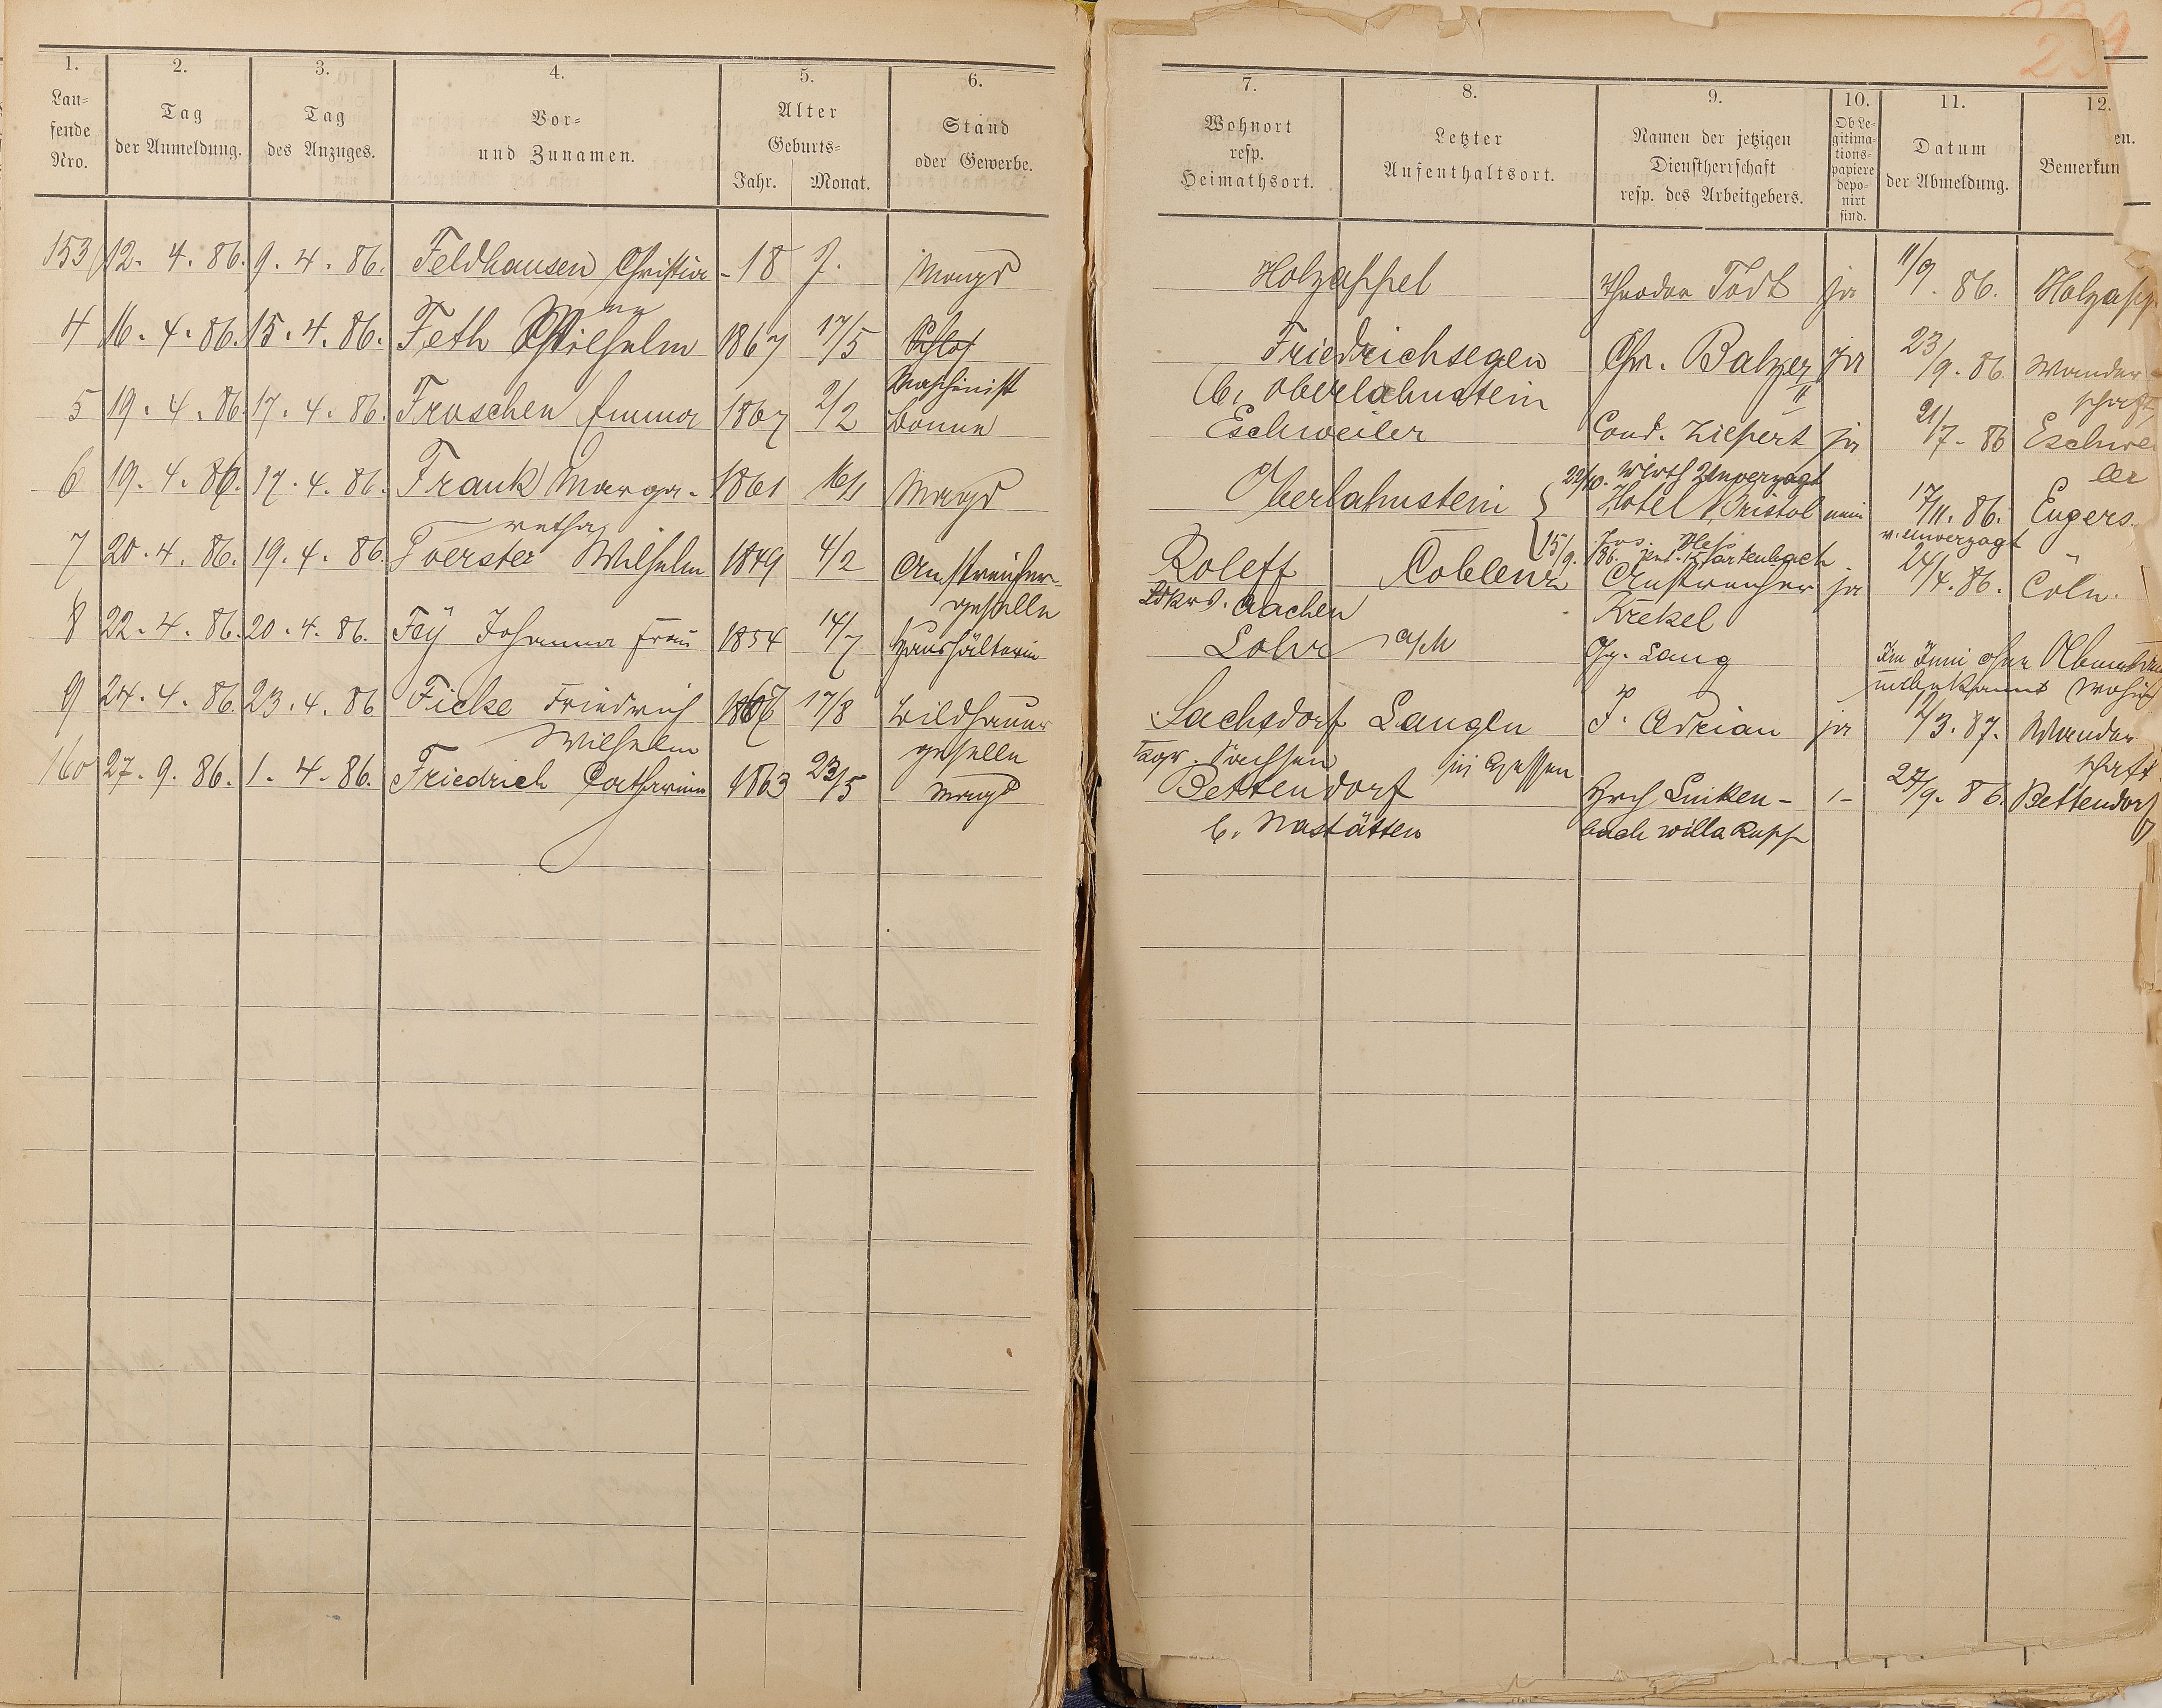 239
1. 2. 3. 4. 5. 6. 7. 8. 9. 10. 11. 12.
Laufende Nro.
Tag der Anmeldung.
Tag des Anzuges.
Vor- und Zunamen.
Alter
Geburts-
Jahr. Monat.
Stand oder Gewerbe.
Wohnort resp. Heimathsort.
Letzter Aufenthaltsort.
Namen der jetzigen Dienstherrschaft resp. des Arbeitgebers.
Ob Legitimationspapiere deponirt sind.
Datum der Abmeldung.
Bemerkun en.
153 12. 4. 86. 9. 4. 86. Feldhausen Christia- 18 J. Magd Holzappel Theodor Todt ja 11/9. 86. Holzapp
ne
4 16. 4. 86. 15. 4. 86. Feth Wilhelm 1867 17/5 Schlos Friedrichsegen Chr. Balzer ja 23/9. 86. Wander-
Maschinist b. Oberlahnstein II schaft
5 19. 4. 86. 17. 4. 86. Froschen Emma 1867 2/2 Bonne Eschweiler Cond. Ziepert ja 21/7. 86 Eschwei
ler
22/10. Wirth Unverzagt
6 19. 4. 86. 17. 4. 86. Frank Marga- 1861 16/1 Magd Oberlahnstein Hotel Bristol nein 17/11. 86. Engers.
retha 15/9. 86. Jos. v. Unverzagt
7 20. 4. 86. 19. 4. 86. Foerster Wilhelm 1849 4/2 Anstreicher- Roleff Coblenz Anstreicher ja 24/4. 86. Cöln.
geselle Ldkrs. Aachen Krekel
8 22. 4. 86. 20. 4. 86. Feÿ Johanna Frau 1854 14/7 Haushälterin Lohr a/M Gg. Lang Im Juni ohne
unbekannt wohin
9 24. 4. 86. 23. 4. 86 Ficke Friedrich 1867 17/8 Bildhauer Sachsdorf Langen P. Adrian ja 7/3. 87. Wander
Wilhelm geselle Kgr. Sachsen in Hessen schaft
160 27. 9. 86. 1. 4. 86. Friedrich Catharina 1863 23/5 Magd Bettendorf Hrch Linken- - 27/9. 86. Bettendorf
b. Nastätten bach Willa Rupp